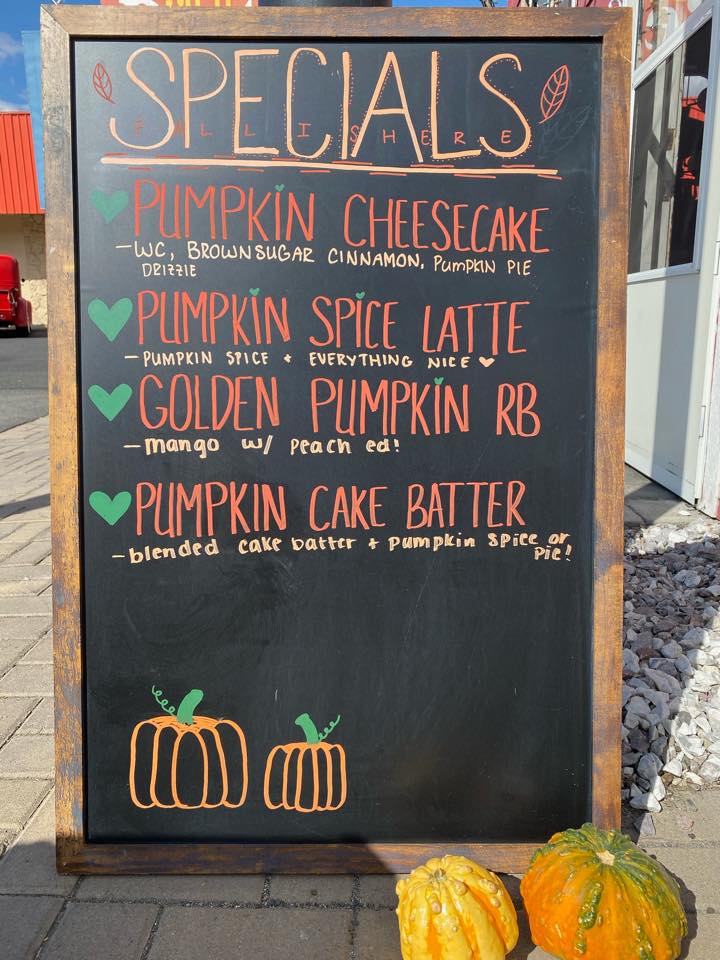 SPECIALS
FALL IS HERE
PUMPKIN CHEESECAKE
-WC, BROWNSUGAR CINNAMON, PUMPKIN PIE
DRIZZIE
PUMPKIN SPICE LATTE
-PUMPKIN SPICE + EVERYTHING NICE ♥
GOLDEN PUMPKIN RB
-mango w/ peach ed!
PUMPKIN CAKE BATTER
-blended cake batter + pumpkin spice or
pie!